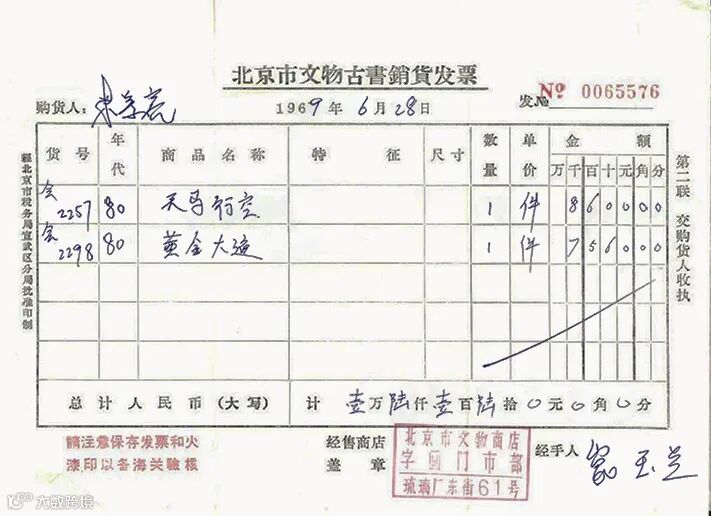 北京市文物古書銷貨发票
购货人:
1969年6月28日
发 № Nº 0065576
货号 年代 商品名称 特征 尺寸 数量 单价 金额
万 千 百 十 元 角 分
会2257 80 天马行空 1 件 8 6 0 0 0 0
会2298 80 黄金大道 1 件 7 5 6 0 0 0
总计人民币(大写) 计 壹万陆仟壹百陆拾0元0角0分
請注意保存发票和火
漆印以备海关驗核
经售商店
盖章
北京市文物商店
字画门市部
琉璃厂东街61号
经手人
經北京市税务局宣武区分局批准印制
第二联 交购货人收执
大数跨境